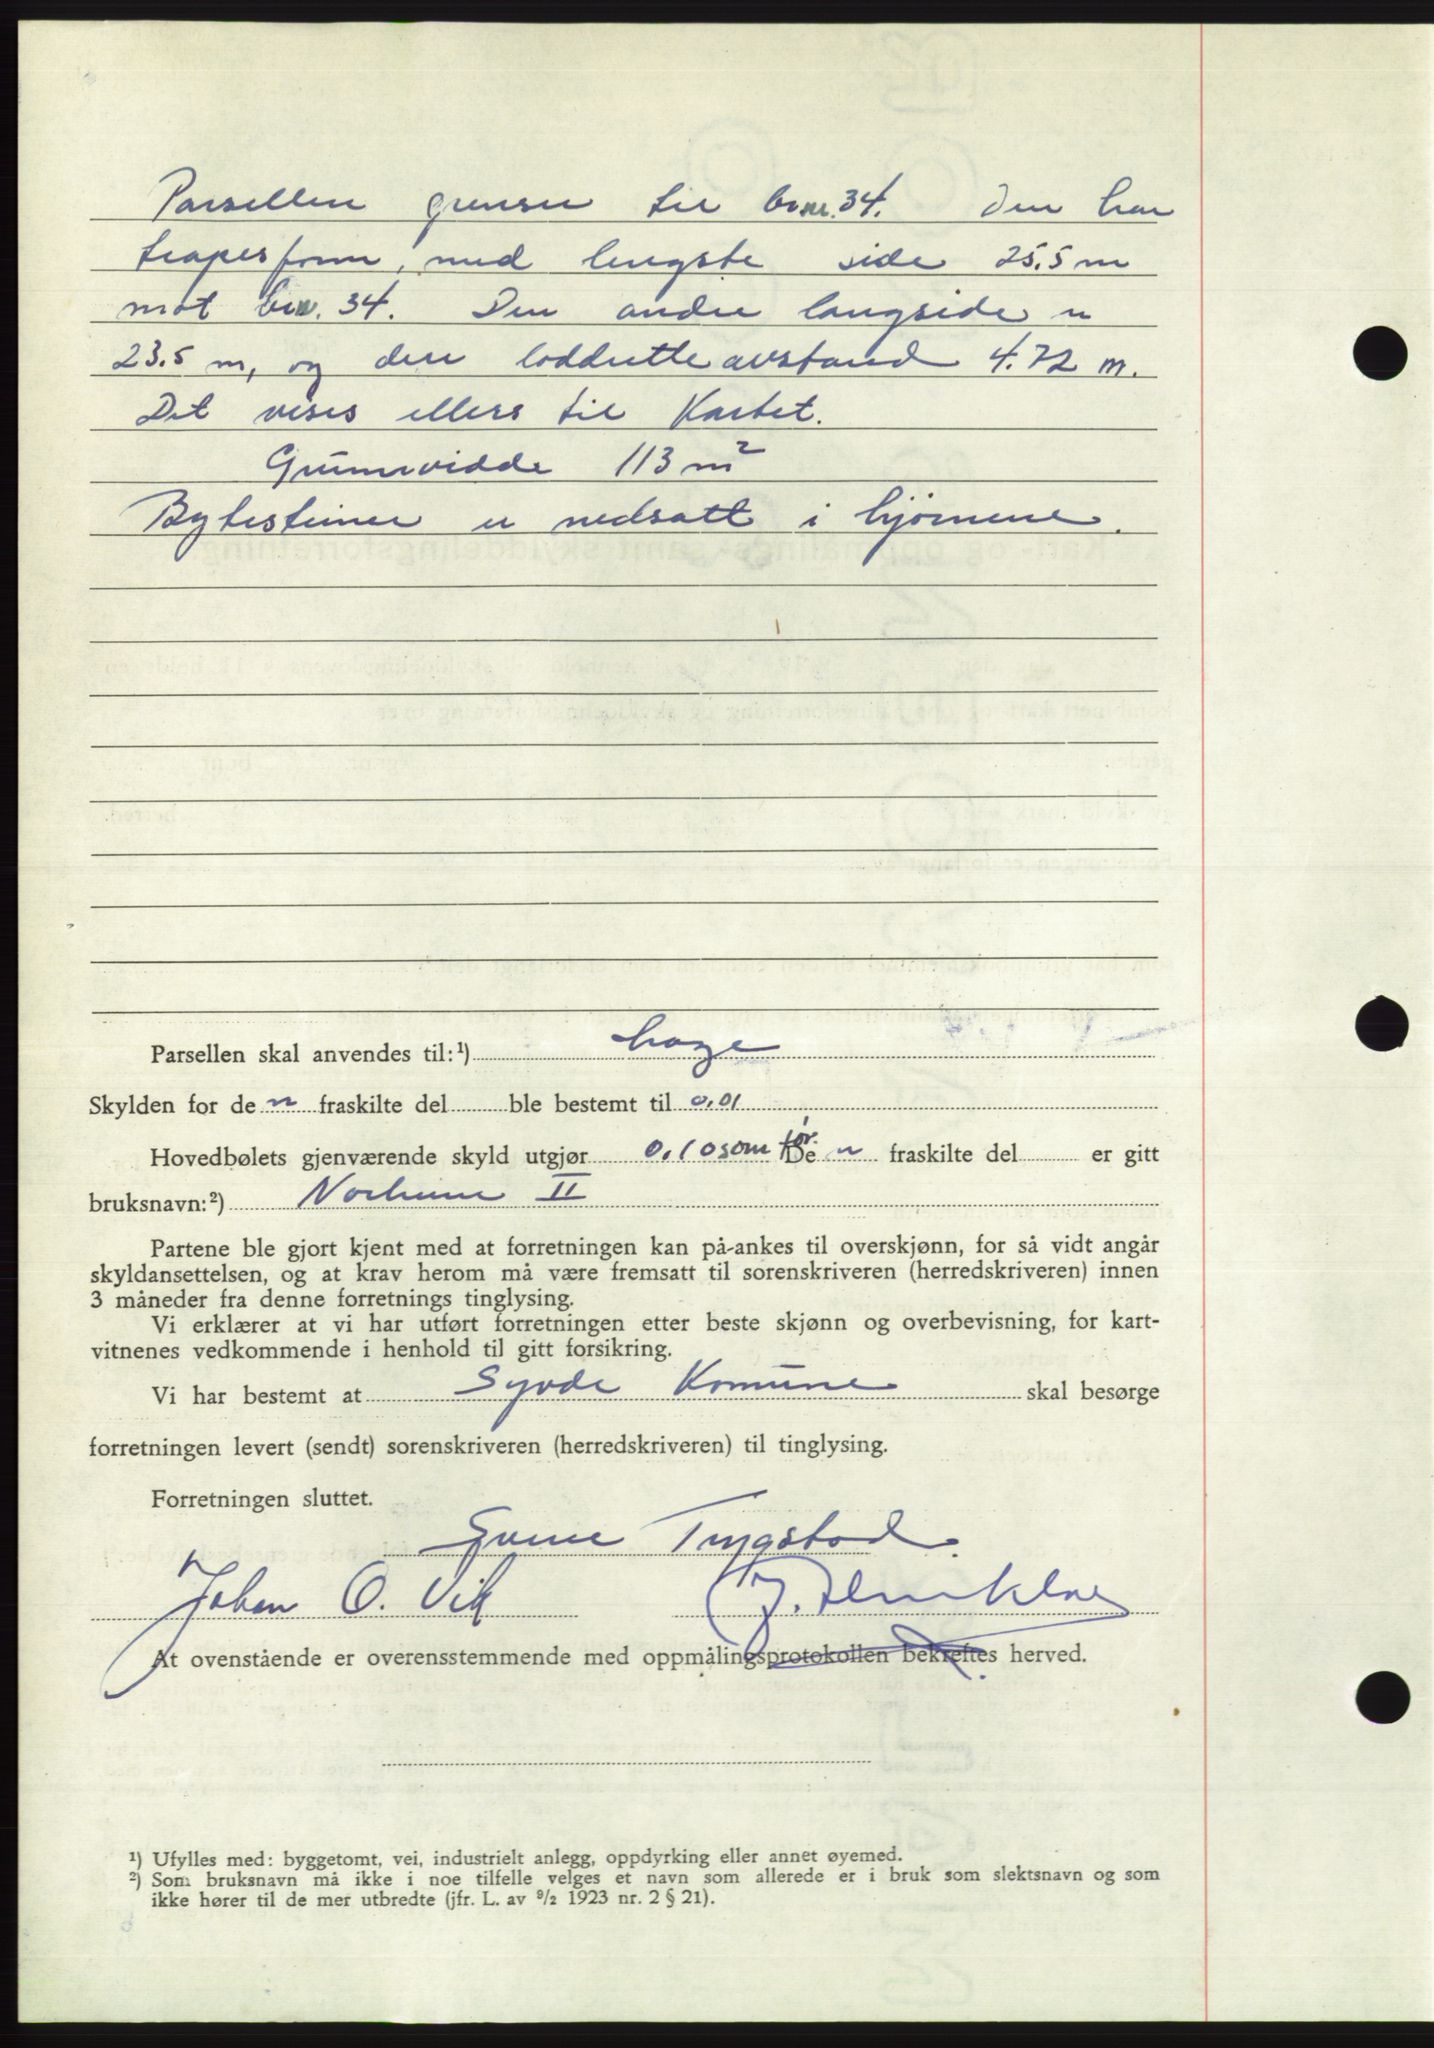 Parsellen grenser til brnr. 34. Den har
trapesform, med lengste side 25.5 m
mot brn. 34. Den andre langside er
23.5 m, og den loddrette avstand 4.72 m.
Det vises ellers til Kartet.
Grunnvidde 113 m²
Bytesteiner er nedsatt i hjørnene.
Parsellen skal anvendes til:¹) hage
Skylden for de n fraskilte del ble bestemt til 0.01
Hovedbølets gjenværende skyld utgjør 0.10 som før. De n fraskilte del er gitt
bruksnavn:²) II
Partene ble gjort kjent med at forretningen kan på-ankes til overskjønn, for så vidt angår
skyldansettelsen, og at krav herom må være fremsatt til sorenskriveren (herredskriveren) innen
3 måneder fra denne forretnings tinglysing.
Vi erklærer at vi har utført forretningen etter beste skjønn og overbevisning, for kart-
vitnenes vedkommende i henhold til gitt forsikring.
Vi har bestemt at Syvde Komune skal besørge
forretningen levert (sendt) sorenskriveren (herredskriveren) til tinglysing.
Forretningen sluttet.
Trygstad.
Johan O. Vik
At ovenstående er overensstemmende med oppmålingsprotokollen bekreftes herved.
¹) Ufylles med: byggetomt, vei, industrielt anlegg, oppdyrking eller annet øyemed.
²) Som bruksnavn må ikke i noe tilfelle velges et navn som allerede er i bruk som slektsnavn og som
ikke hører til de mer utbredte (jfr. L. av ⁹/₂ 1923 nr. 2 § 21).